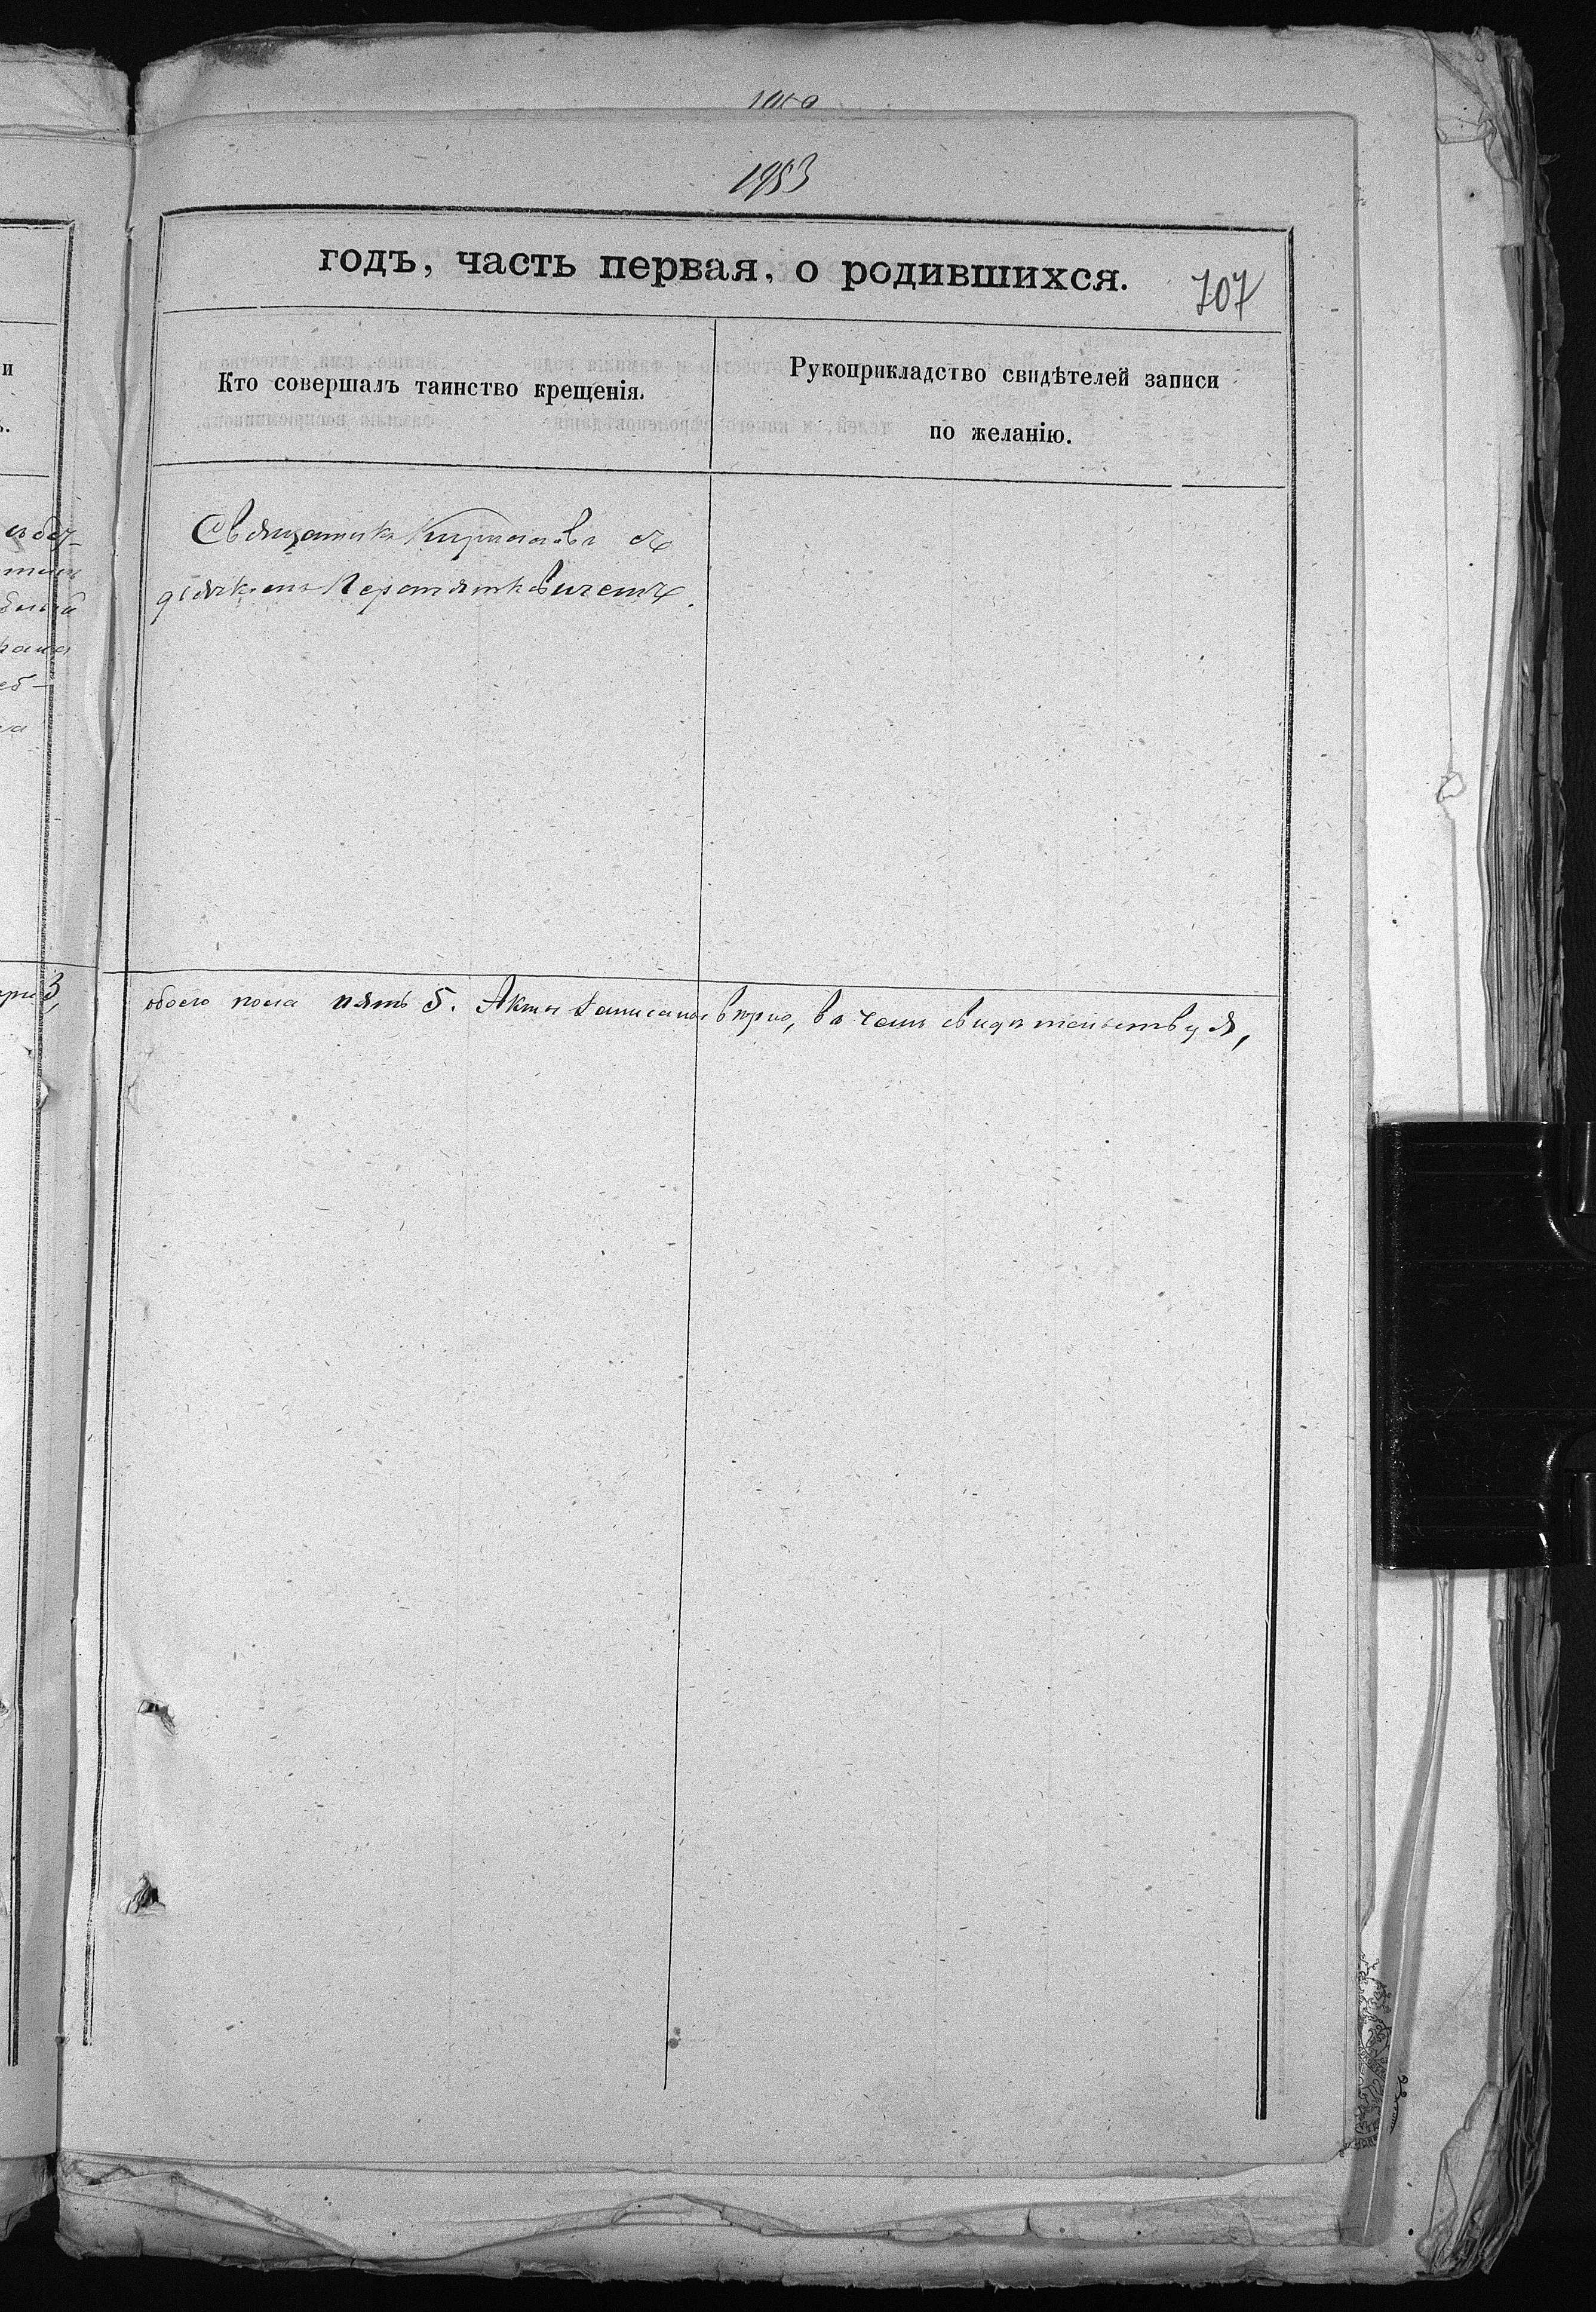 1953
годъ, часть первая, о родившихся.
707
Кто совершалъ таинство крещенія.
Рукоприкладство свидѣтелей записи
по желанію.
Священникъ съ
дьячкомъ
обоего пола пять 5. Акты записаны вѣрно, въ чемъ свидѣтельствуя,